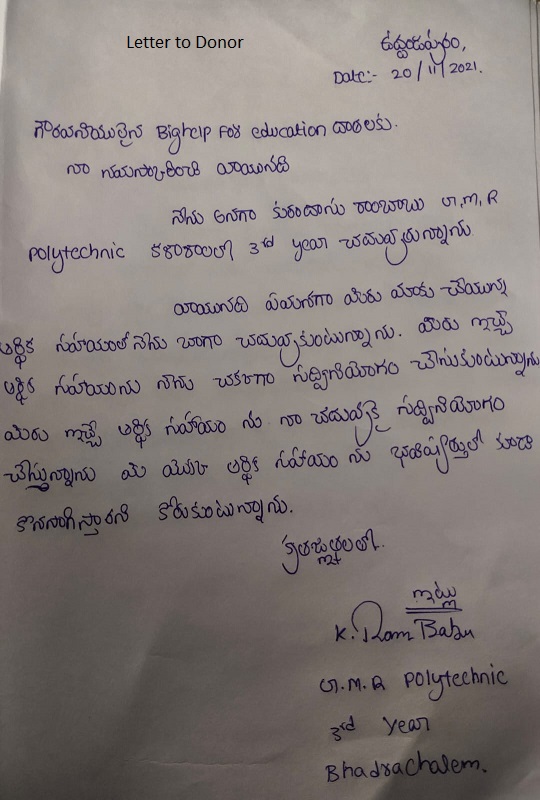 Letter to Donor
ఉద్దండపురం,
Date:- 20/11/2021.
గౌరవనీయులైన Bighelp For education దాతలకు.
నా నమస్కరించి వ్రాయునది
నేను అనగా కురందాసు రాంబాబు V.M.R
Polytechnic కళాశాలలో 3rd year చదువుతున్నాను
వ్రాయునది ఏమనగా మీరు మాకు చేయుచున్న
ఆర్థిక సహాయంతో నేను బాగా చదువుకుంటున్నాను. మీరు ఇచ్చే
ఆర్థిక సహాయంను నేను చక్కగా సద్వినియోగం చేసుకుంటున్నాను
మీరు ఇచ్చే ఆర్థిక సహాయం ను నా చదువుకై సద్వినియోగం
చేస్తున్నాను మీ యొక్క ఆర్థిక సహాయం ను భవిష్యత్తులో కూడా
కొనసాగిస్తారని కోరుకుంటున్నాను.
కృతజ్ఞతలతో.
ఇట్లు
K. Ram Babu
V.M.R Polytechnic
3rd Year
Bhadrachalem.